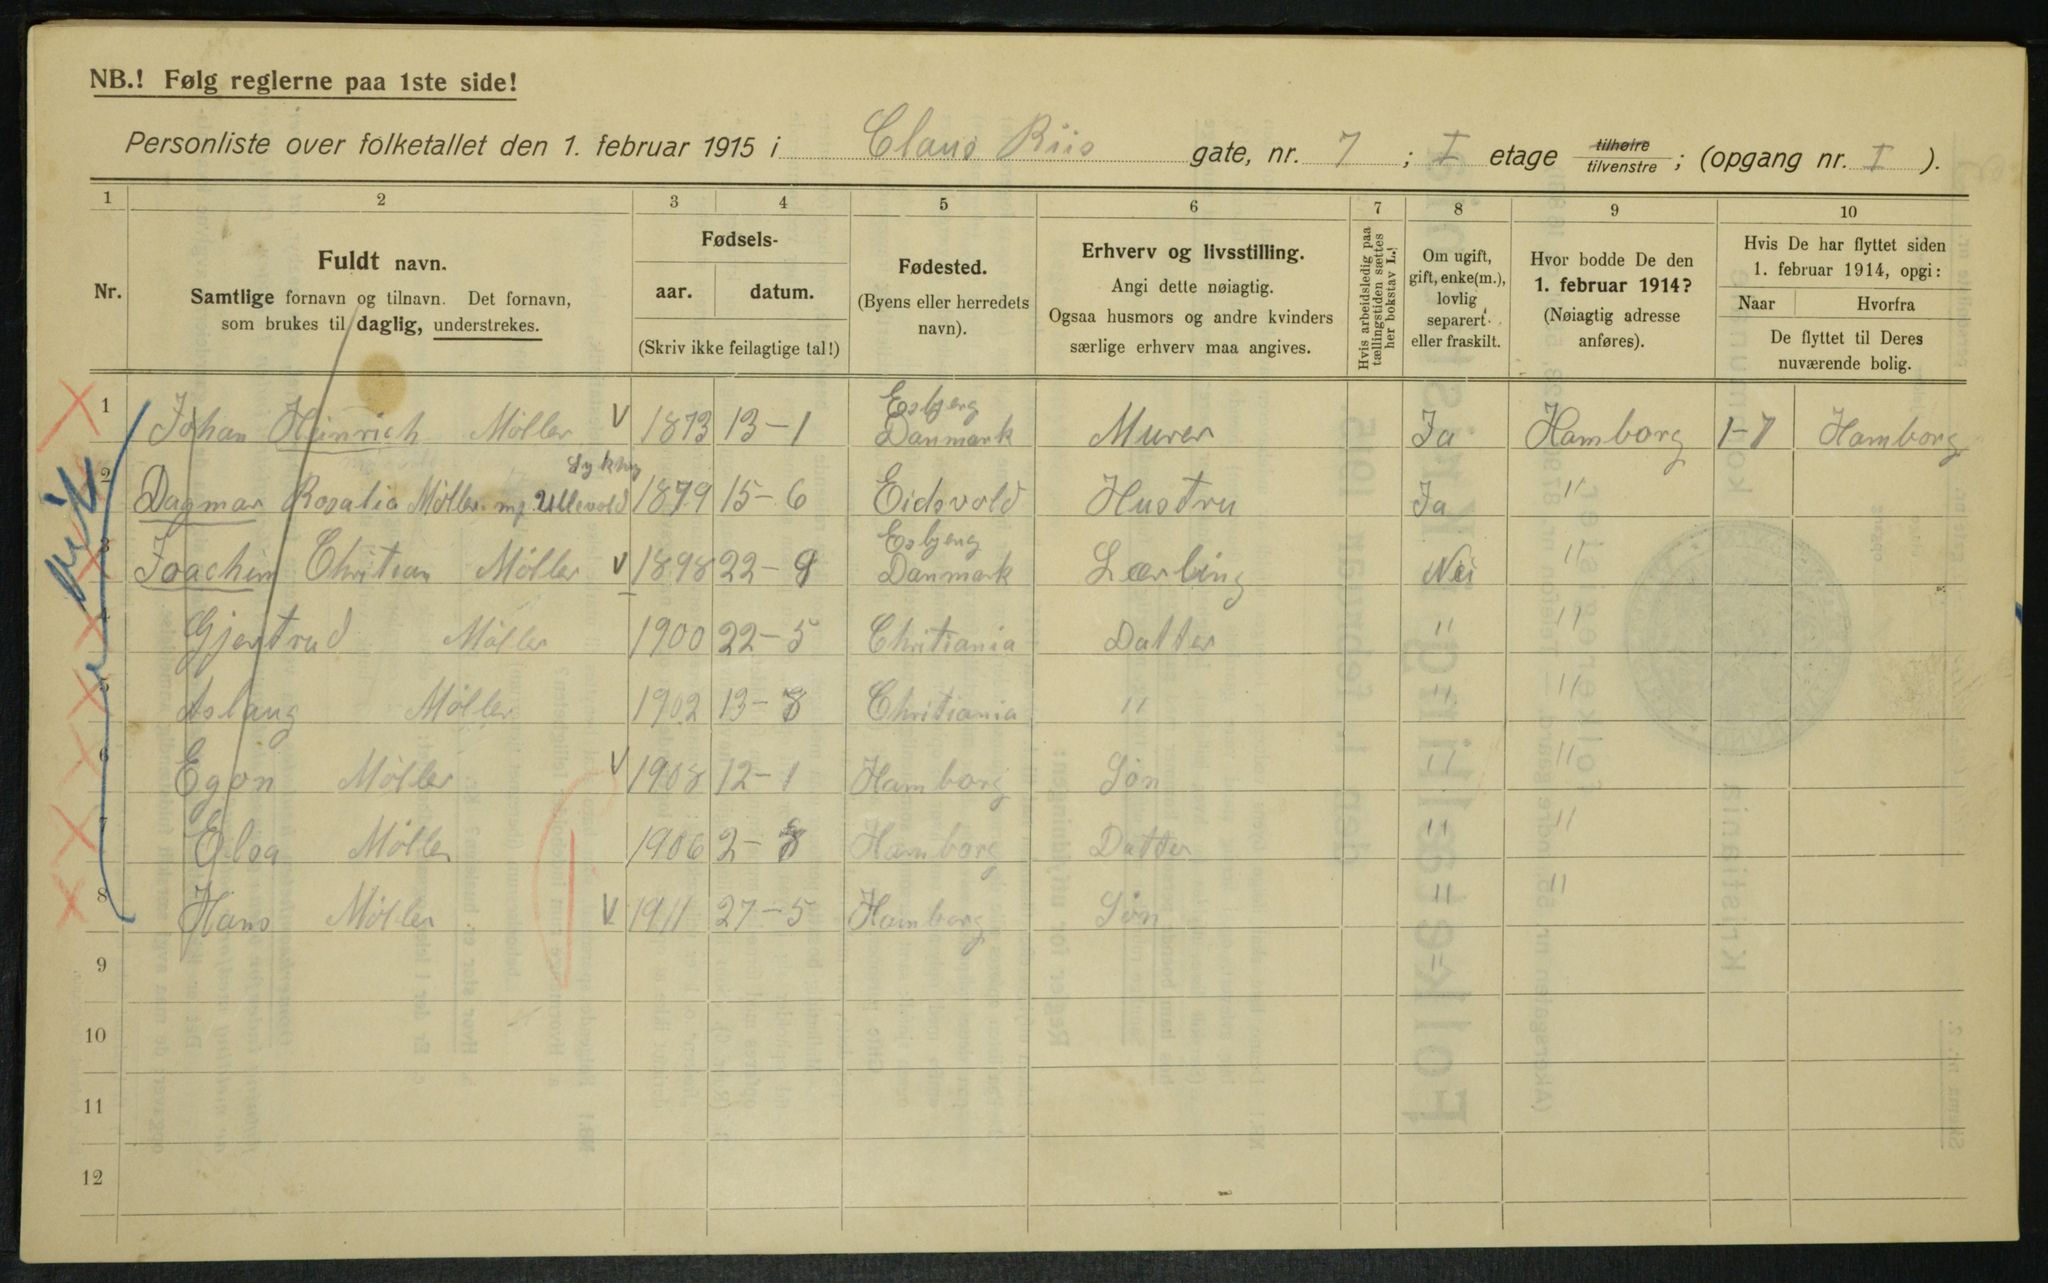 NB.! Følg reglerne paa 1ste side!
Personliste over folketallet den 1. februar 1915 i Claus Riis gate, nr. 7 ; I etage tilhøire tilvenstre ; (opgang nr. I ).
1 2 3 4 5 6 7 8 9 10
Nr.
Fuldt navn.
Samtlige fornavn og tilnavn. Det fornavn,
som brukes til daglig, understrekes.
Fødsels-
aar. datum.
(Skriv ikke feilagtige tal!)
Fødested.
(Byens eller herredets
navn).
Erhverv og livsstilling.
Angi dette nøiagtig.
Ogsaa husmors og andre kvinders
særlige erhverv maa angives.
Hvis arbeidsledig paa
tællingstiden sættes
her bokstav L.!
Om ugift,
gift, enke(m.),
lovlig
separert
eller fraskilt.
Hvor bodde De den
1. februar 1914?
(Nøiagtig adresse
anføres).
Hvis De har flyttet siden
1. februar 1914, opgi:
Naar Hvorfra
De flyttet til Deres
nuværende bolig.
1 Johan Heinrich Møller V 1873 13-1 Esbjerg Danmark Murer Ja Hamborg 1-7 Hamborg
2 Dagmar Rosalia Møller Ullevold Sykhus 1879 15-6 Eidsvold Hustru Ja "
3 Joachim Chritian Møller V 1898 22-9 Esbjerg Danmark Lærling Nei "
4 Gjertrud Møller 1900 22-5 Chritiania Datter " "
5 Aslaug Møller 1902 13-8 Chritiania " " "
6 Egon Møller V 1908 12-1 Hamborg Søn " "
7 Elsa Møller 1906 2-8 Hamborg Datter " "
8 Hans Møller V 1911 27-5 Hamborg Søn " "
9
10
11
12